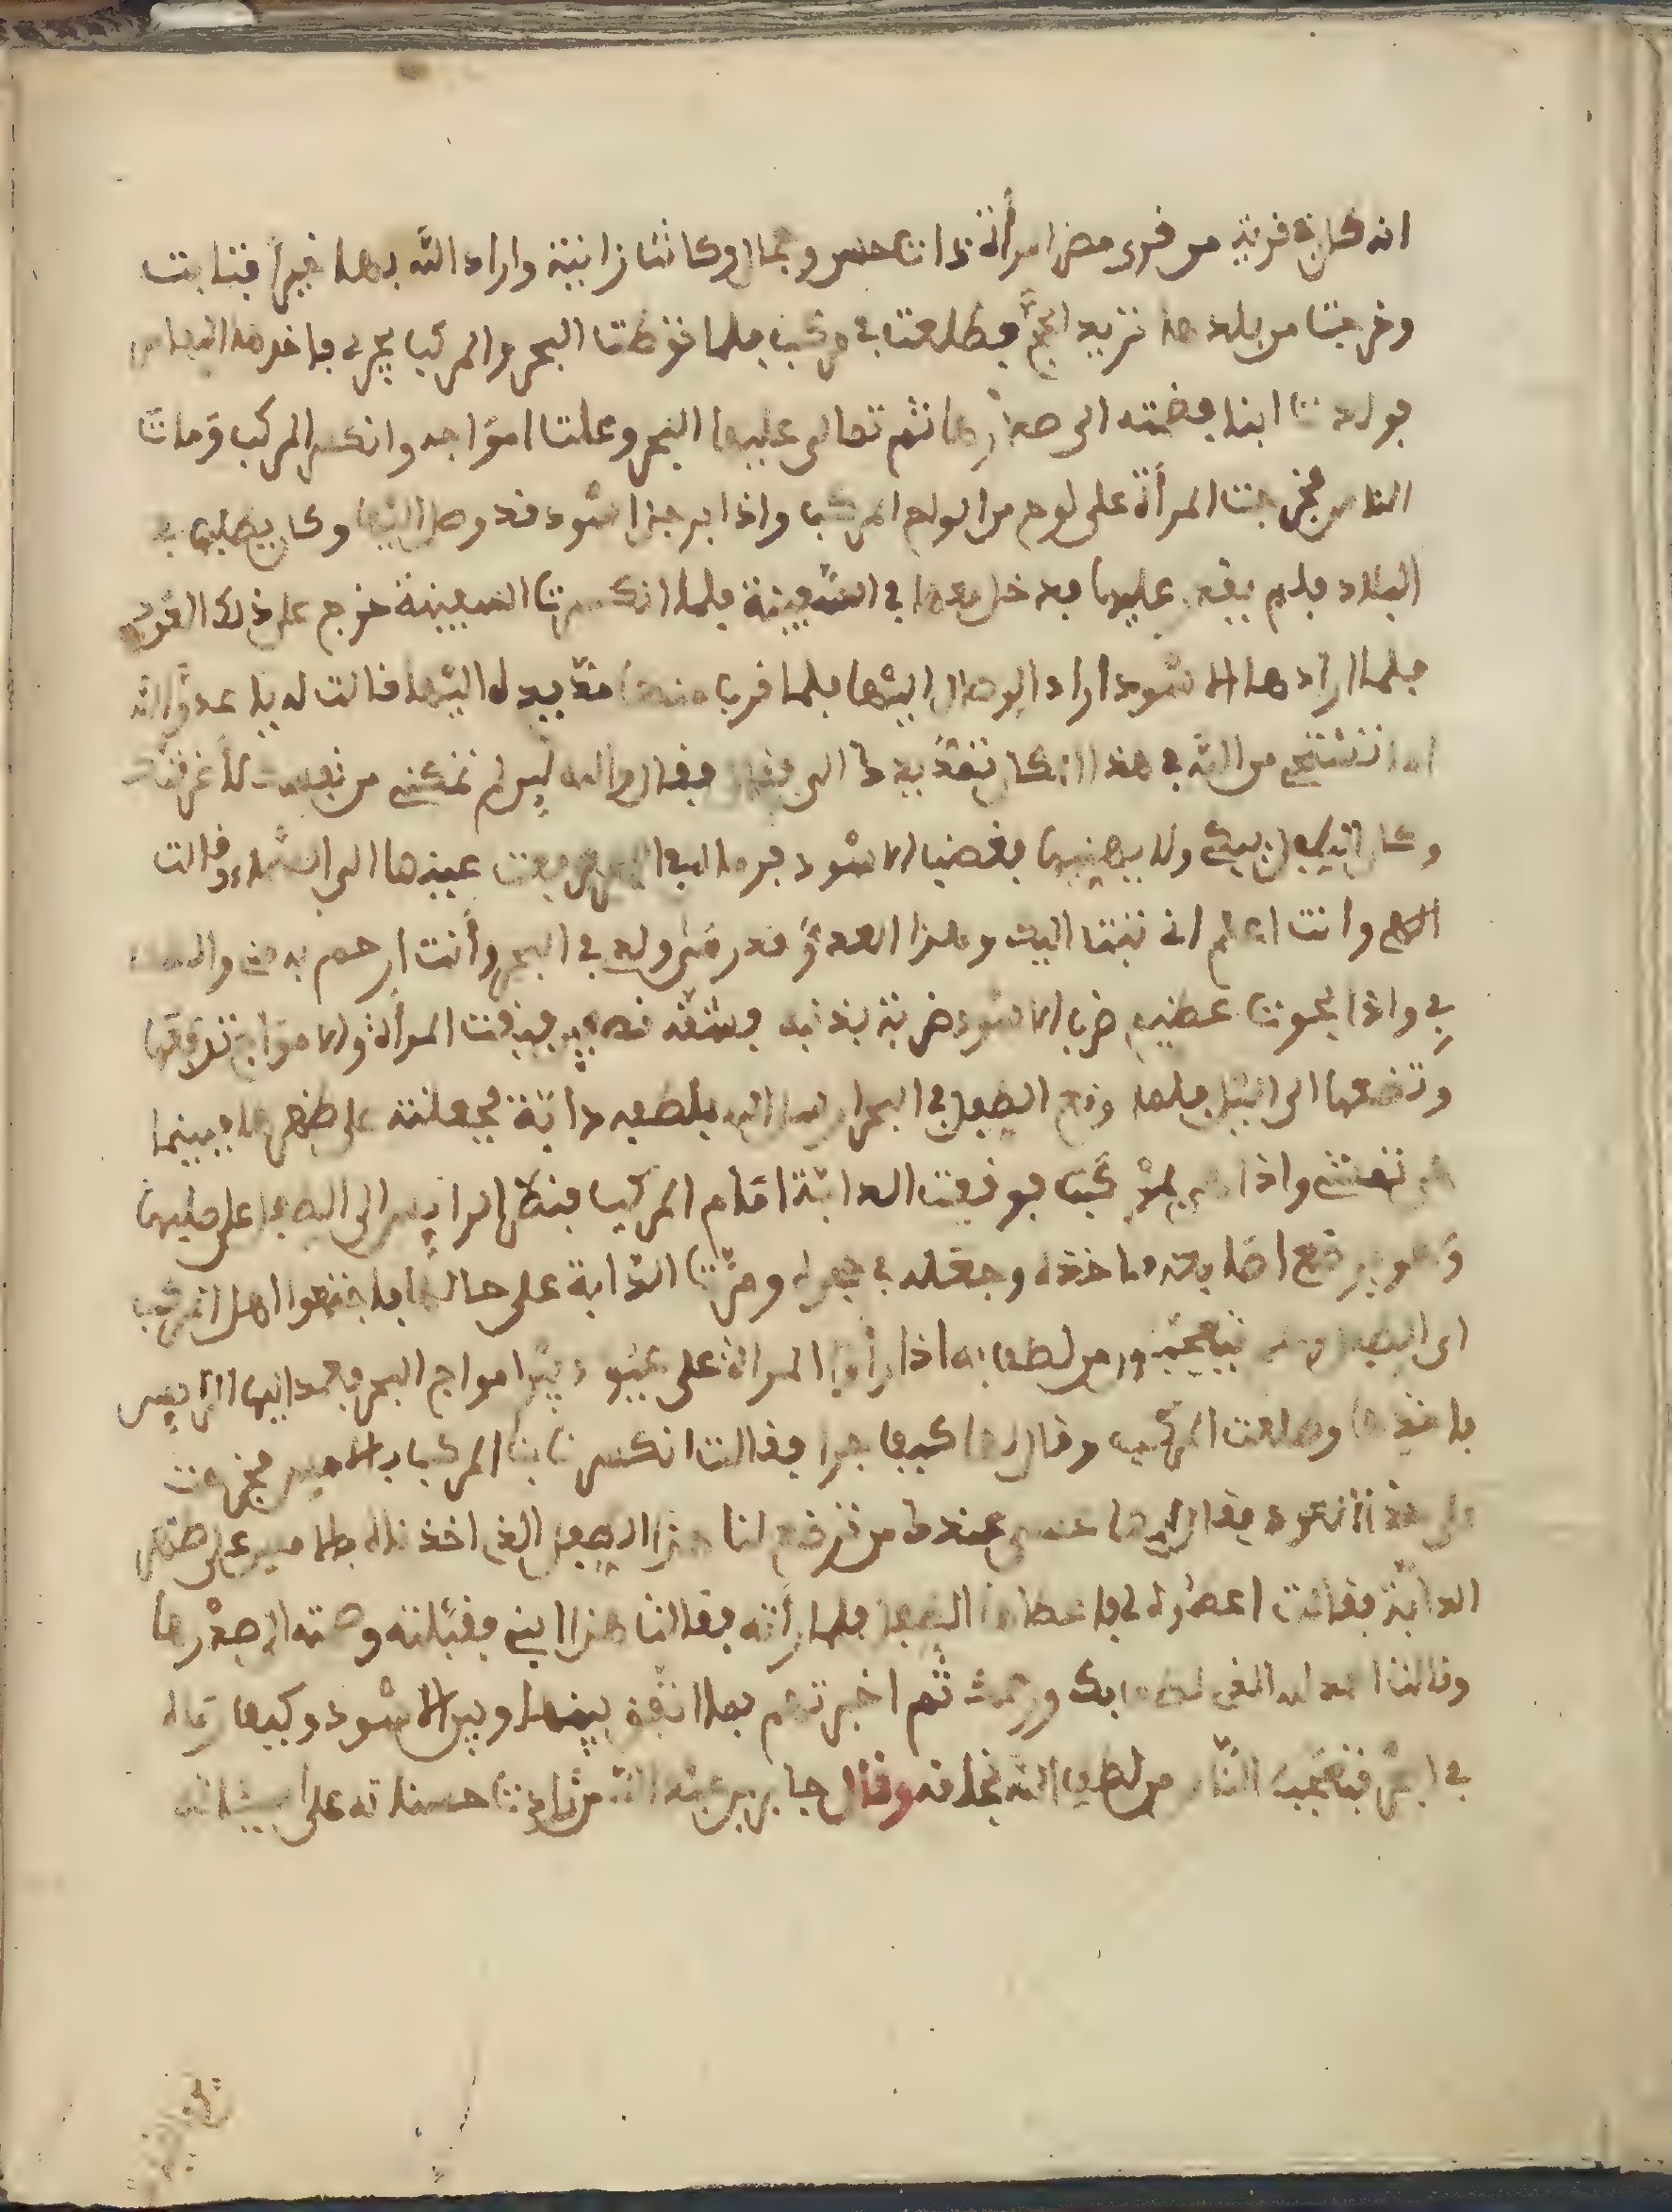 انه كان في قرية من قرى مصر امرأة ذات حسن وجمال وكانت زانية واراد الله بها خيرا فتابت
وخرجت من بلدها تريد الحج فطلعت في مركب فلما توسطت البحر والمركب يجري فاخدها النفاس
فولدت ابنا فضمته الى صدرها ثم تعالى عليها البحر وعلت امواجه وانكسر المركب وماتت
الناس فخرجت المرأة على لوح من الواح المركب واذا برجل اسود قد وصل اليها وكان يطلبها في
البلاد فلم يقدر عليها فدخل معها في السفينة فلما انكسرت السفينة خرج على ذلك اللوح
فلما راها الاسود اراد الوصال اليها فلما قرب منها مد يده اليها فقالت له يا عدو الله
اما تستحي من الله في هذا المكان تمد يدك الي فقال والله لين لم تمكني من نفسك لاغرقنك
وكان الطفل يبكي ولا يهنيها فغضب الاسود فرماه في البحر فرفعت عينها الى السماء وقالت
الاهي وانت اعلم اني تبت اليك وهذا العدو قد رمى ولدي في البحر وأنت ارحم به مني والطف
بي واذا بحوت عظيم ضرب الاسود ضربة بذنبه فشقه نصفين فبقيت المرأة والامواج ترفعها
وتضعها الى الليل فلما وقع الطفل في البحر ارسل الله بلطفه دابة فجعلته على ظهرها فبينما
هي تمشي واذا هي بمركب فوقفت الدابة امام المركب فنظر الرايس الى الطفل على ظهرها
وهو يرضع اصابعه فاخذه وجعله في حجره ومرت الدابة على حالها فاجتمعوا اهل المركب
الى الطفل وهم يتعجبون من لطف الله اذا رأوا المرأة على عود بين امواج البحر فعمد اليها الرايس
فاخذها وطلعت المركب وقال لها كيف جرا فقالت انكسرت بنا المركب بالامس فخرجت
على هذا العود فقال لها عسى عندك من ترضع لنا هذا الطفل الذي اخذناه بالامس على ظهر
الدابة فقالت اعطوه لي فاعطاها الطفل فلما رأته فقالت هذا ابني فقبلته وضمته الى صدرها
وقالت الحمد لله الذي لطف بك ورحمك ثم اخبرتهم بما اتفق بينها وبين الاسود وكيف رماه
في البحر فتعجب الناس من لطف الله بخلقه وقال جابر رضي الله عنه من زادت حسناته على سيئاته